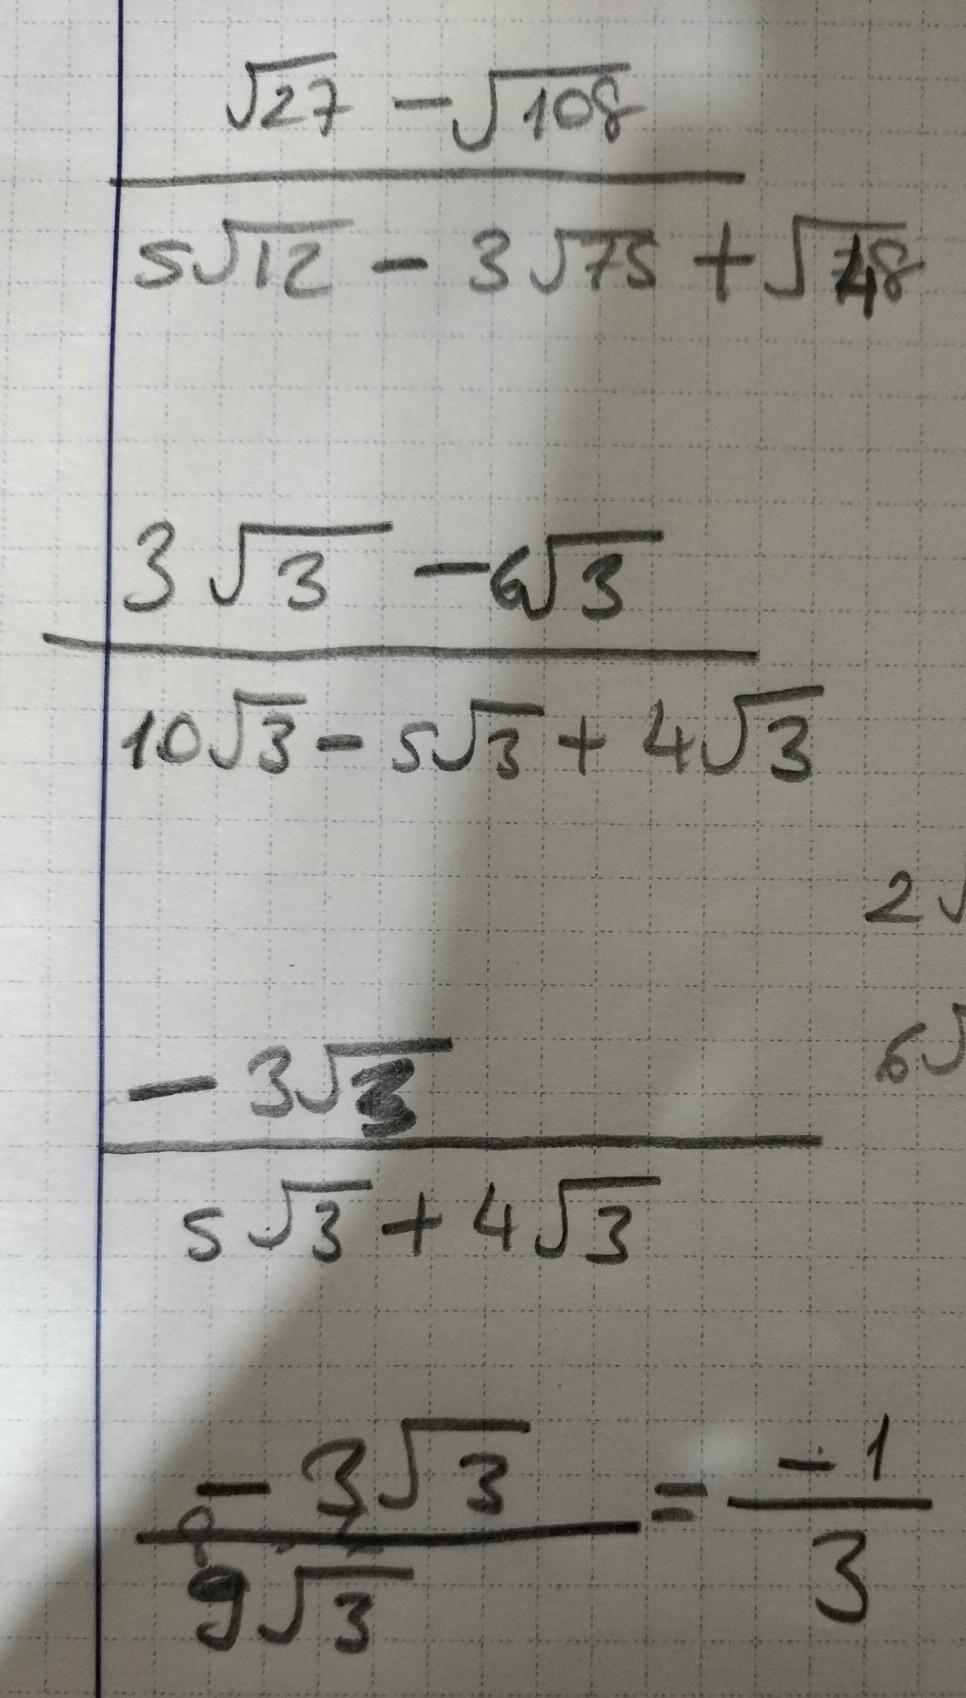 √27 - √108
5√12 - 3√75 + √48
3√3 - 6√3
10√3 - 5√3 + 4√3
2√
6√
- 3√3
5√3 + 4√3
- 3√3 = -1
9√3 3